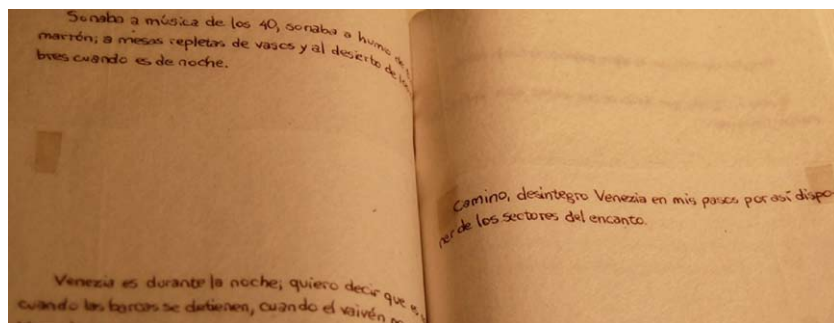 Sonaba a música de los 40, sonaba a humo de
marrón; a mesas repletas de vasos y al desierto de
bres cuando es de noche.
Venezia es durante la noche; quiero decir que es
cuando las barcas se detienen, cuando el vaivén
Camino, desintegro Venezia en mis pasos por así dispo-
ner de los sectores del encanto.